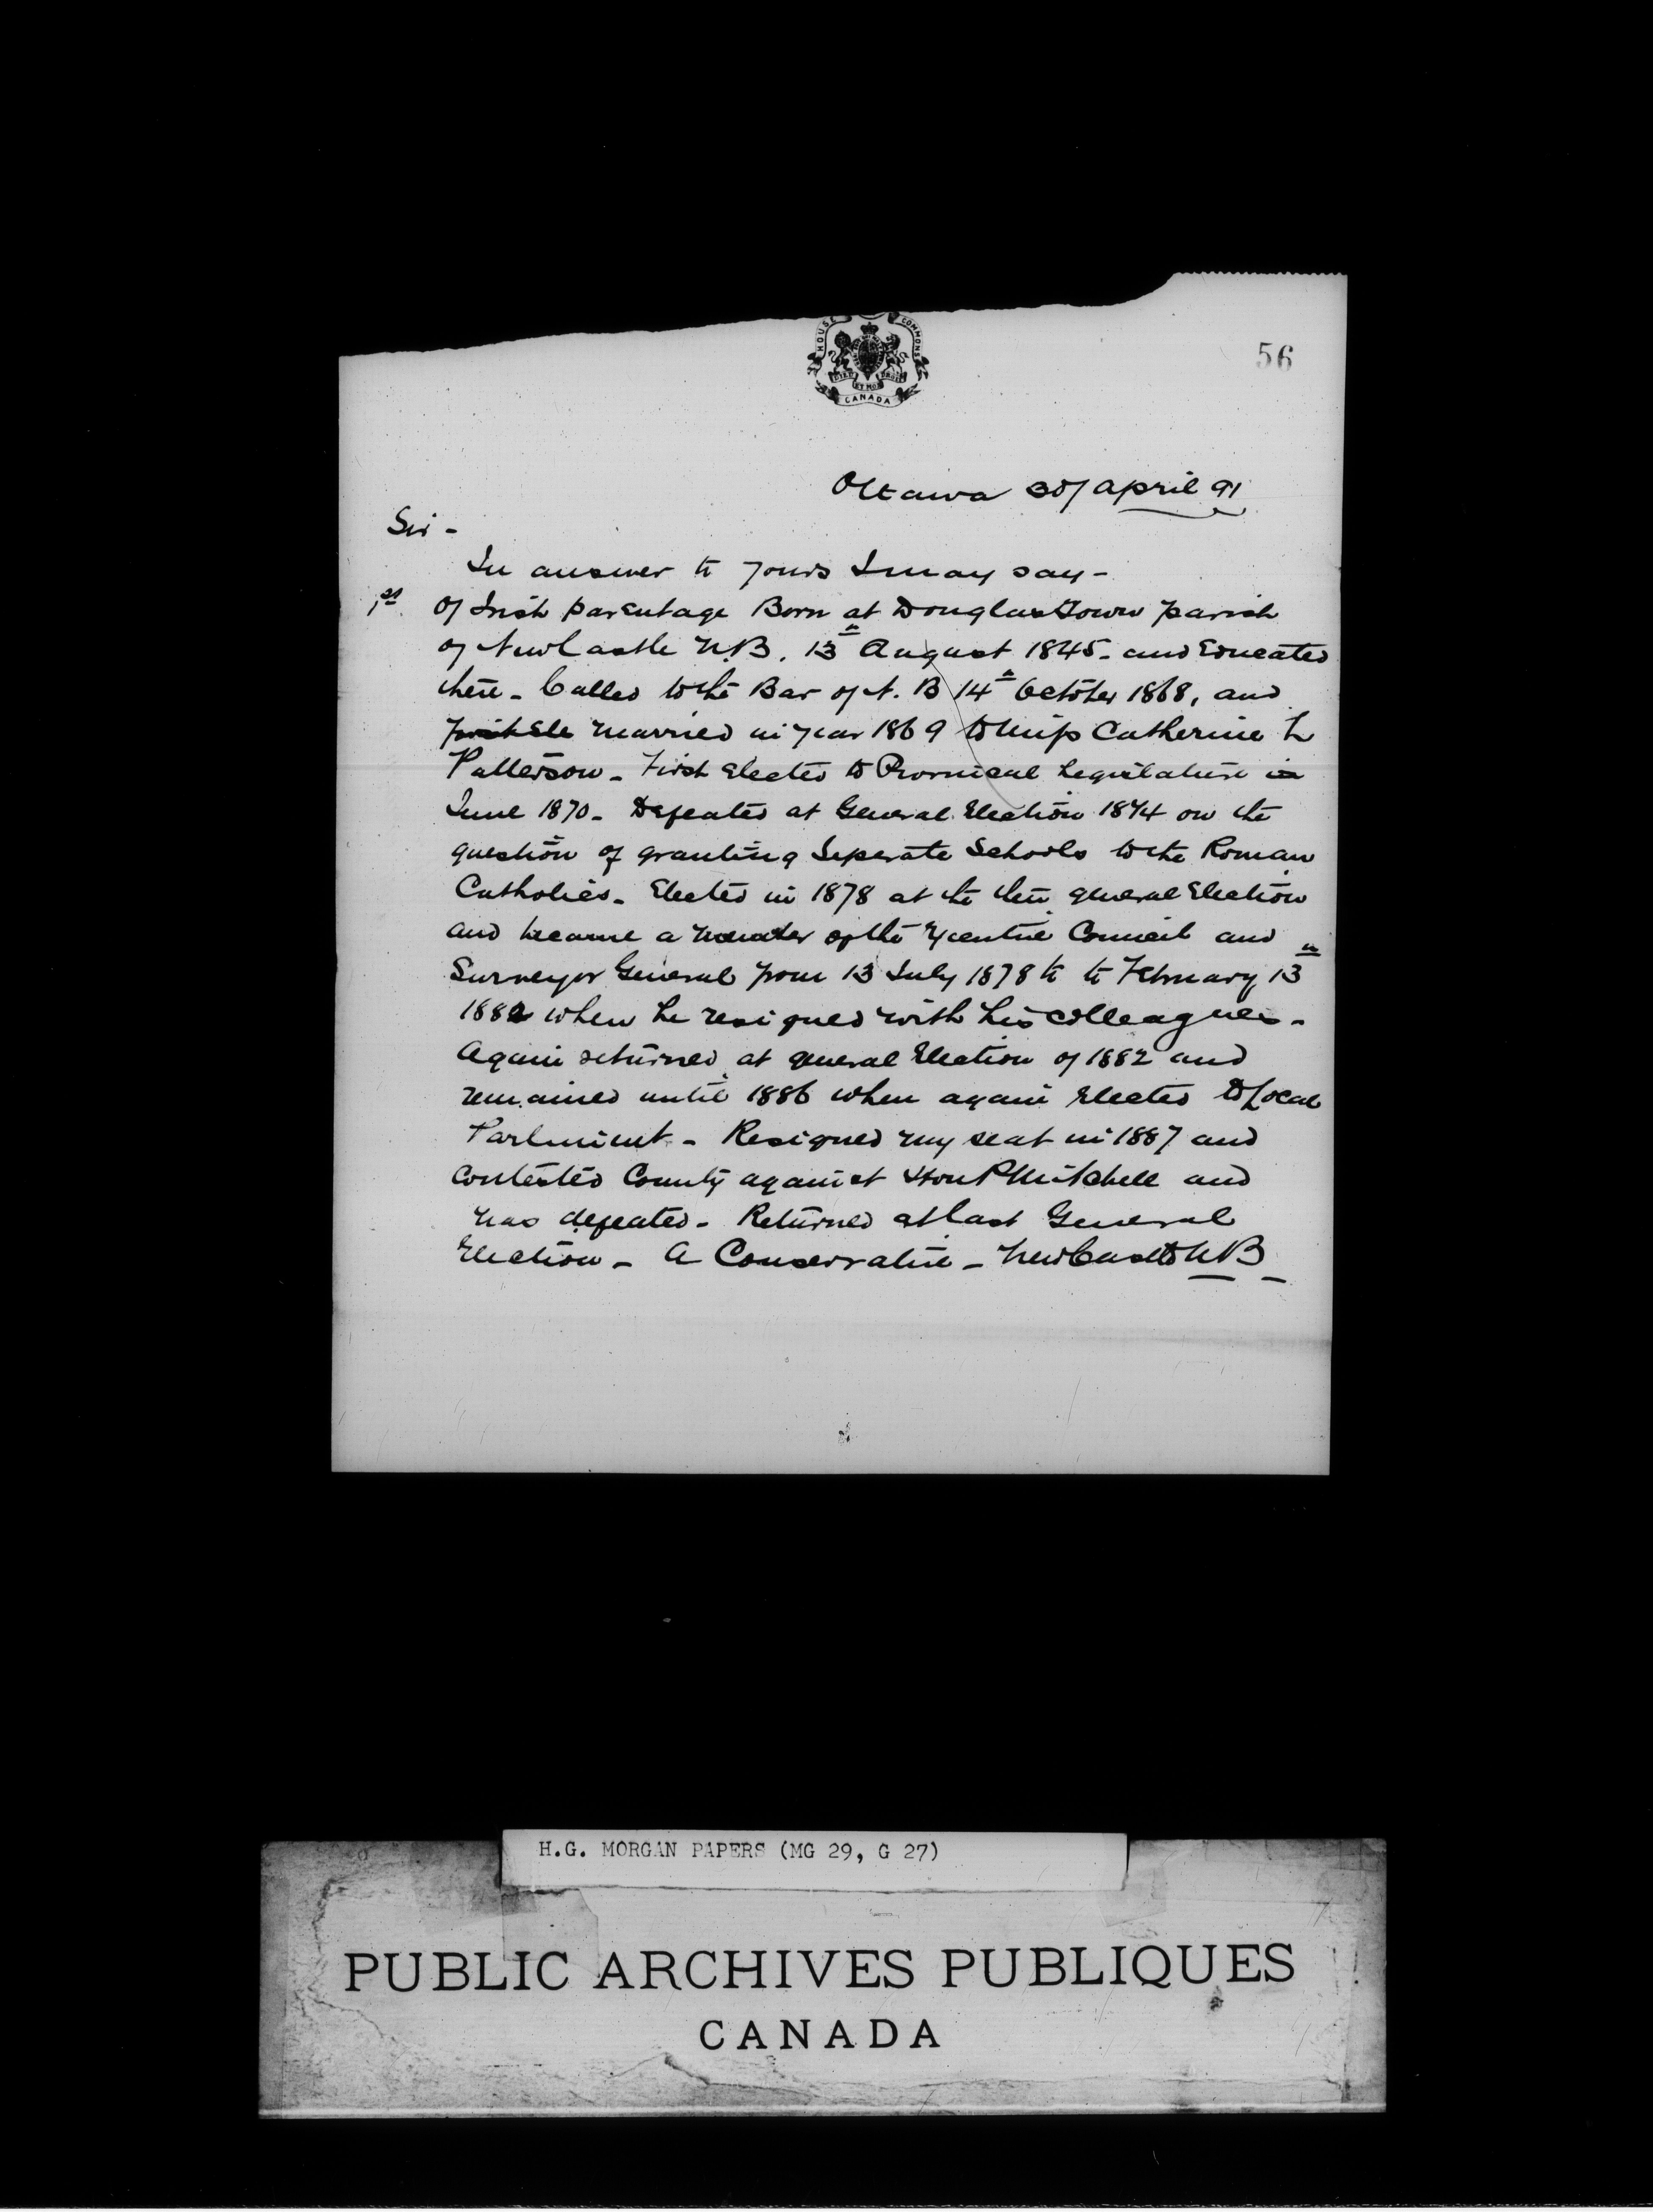 HOUSE COMMONS
DIEU ET MON DROIT
CANADA
56
Ottawa 30/ April 91
Sir -
In answer to yours I may say -
1st. Of Irish parentage Born at Douglastown parish
of NewCastle N.B. 13th August 1845 - and Educated
there - Called to the Bar of N. B 14th October 1868, and
married in year 1869 to Miss Catherine L
Patterson - First Elected to Provincial Legislature in
June 1870 - Defeated at General Election 1874 on the
question of granting Seperate Schools to the Roman
Catholics - Elected in 1878 at the then general Election
and became a member of the Executive Council and
Surveyor General from 13 July 1878 to to February 13th
1882 when he resigned with his colleagues -
Again returned at general Election of 1882 and
remained until 1886 when again Elected to Local
Parliment - Resigned my seat in 1887 and
contested County against Hon P Mitchell and
was defeated - Returned at last General
Election - A Conservative - NewCastle NB -
H.G. MORGAN PAPERS (MG 29, G 27)
PUBLIC ARCHIVES PUBLIQUES
CANADA